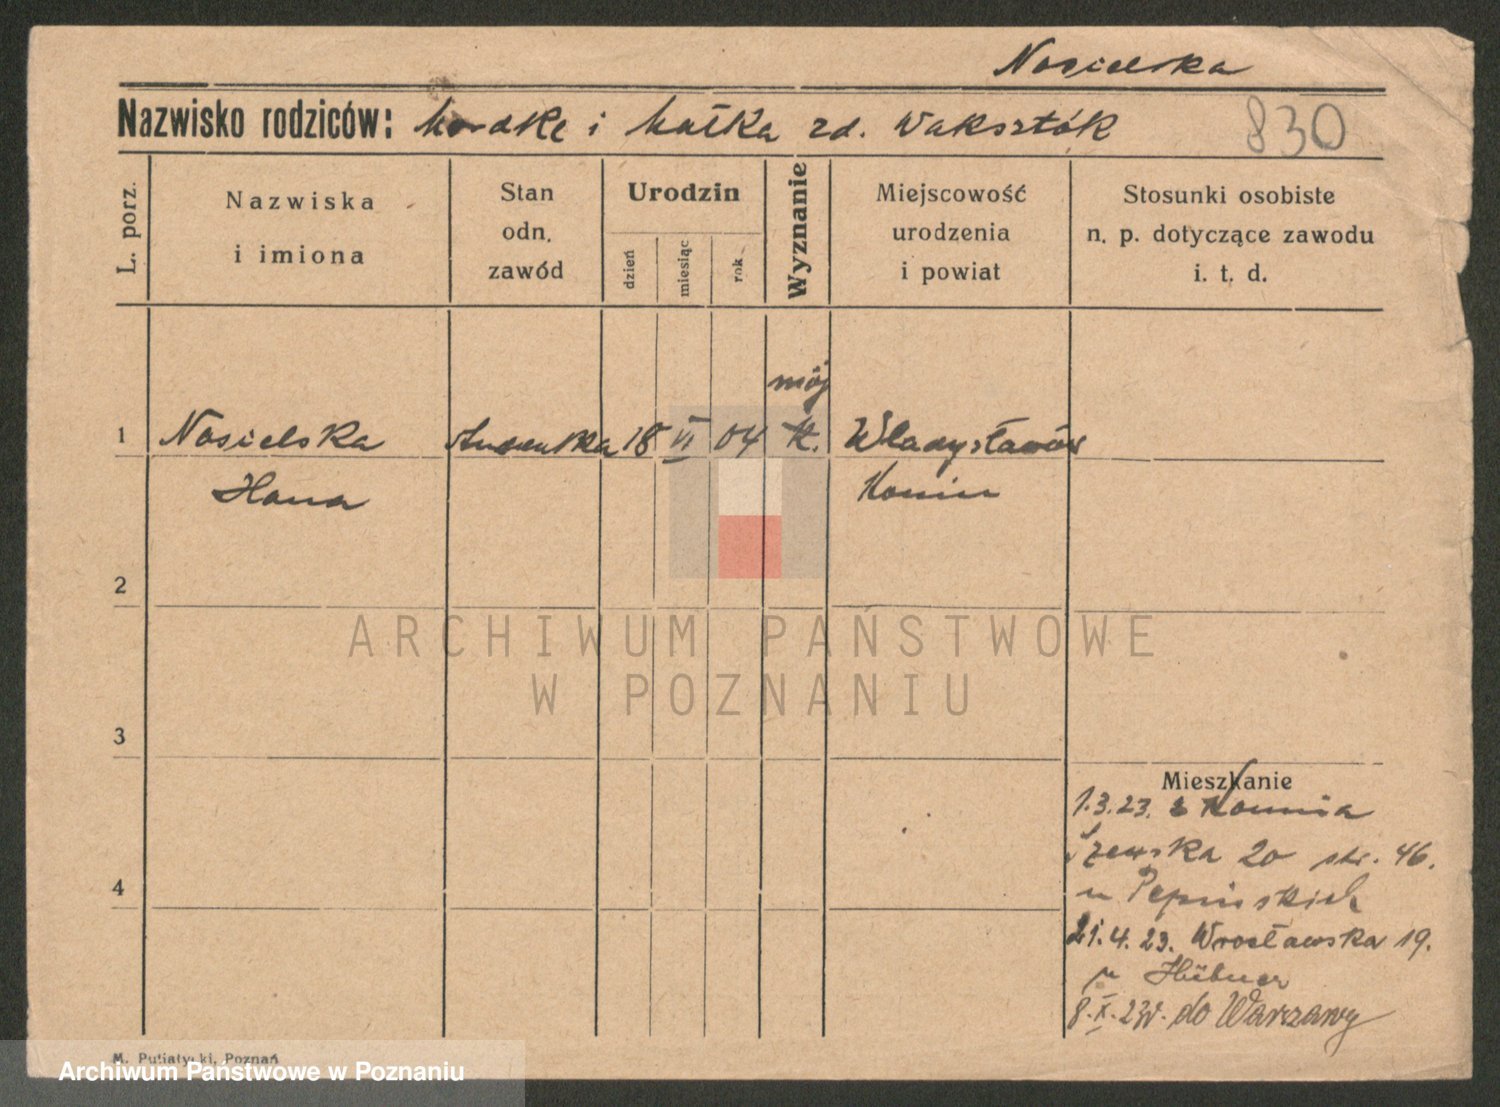 Nosielska
Nazwisko rodziców: Mordke i Małka zd. Waksztok
830
L. porz.
Nazwiska
i imiona
Stan
odn.
zawód
Urodzin
dzień
miesiąc
rok
Wyznanie
Miejscowość
urodzenia
i powiat
Stosunki osobiste
n. p. dotyczące zawodu
i. t. d.
mój
1 Nosielska 18 VI 04 k. Władysławów
Hana Konin
2
ARCHIWUM PAŃSTWOWE
W POZNANIU
3
Mieszkanie
1.3.23. z Konina
Szewska 20 str. 46.
4
u Pepińskich
21.4.23. Wrocławska 19.
u Hübner
8.X.23r. do Warszawy
M. Putiatycki, Poznań
Archiwum Państwowe w Poznaniu